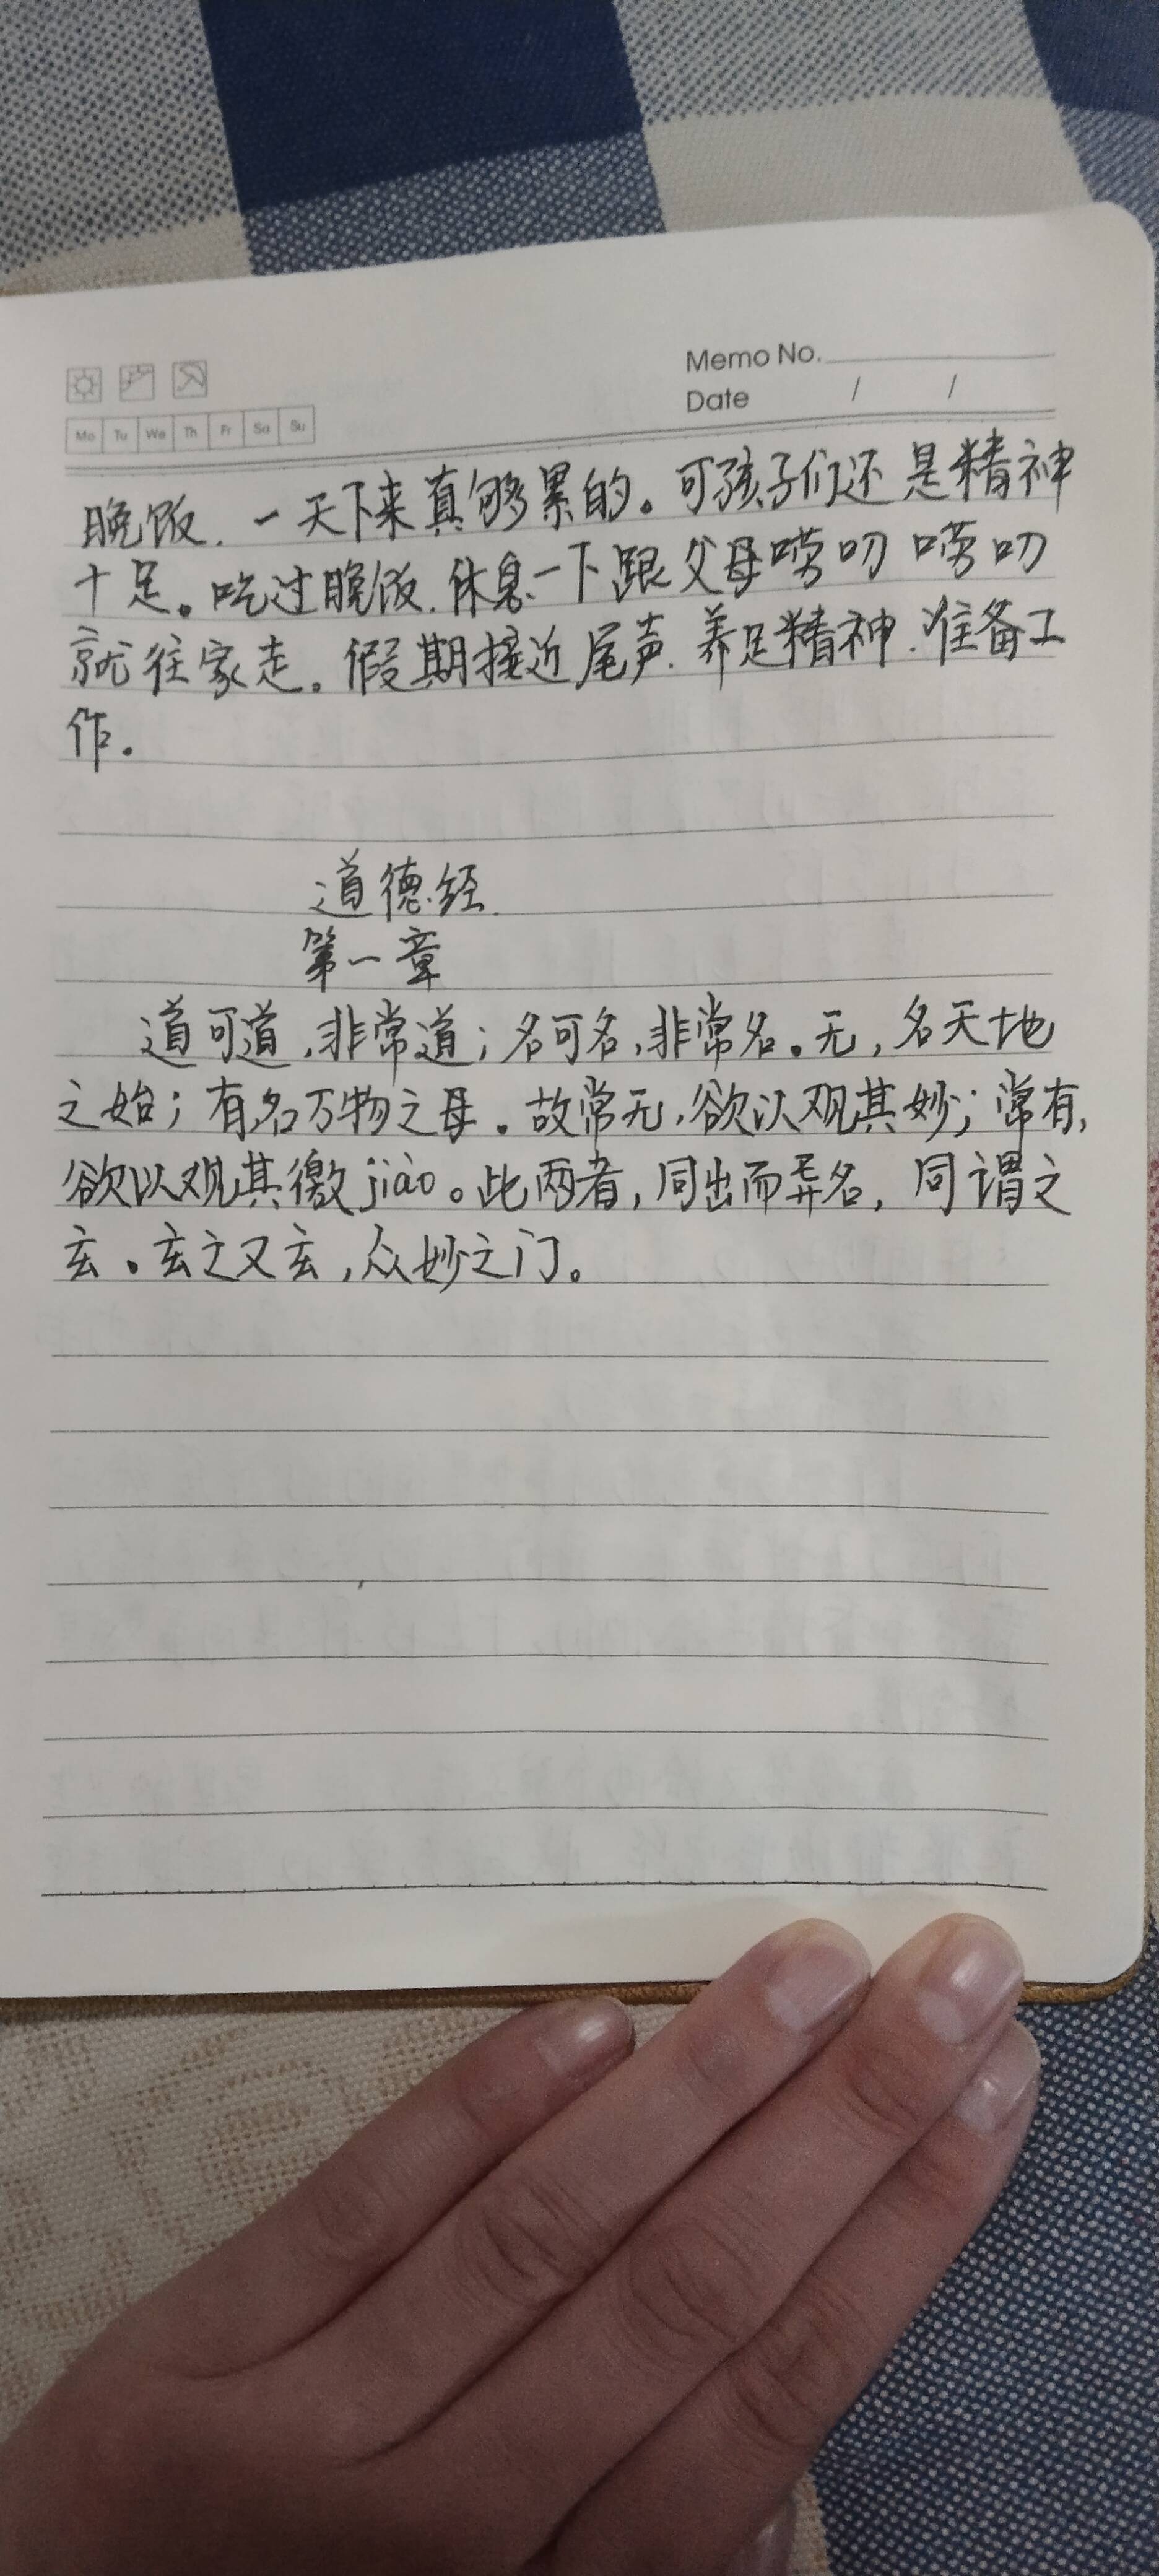 Memo No.
Date / /
Mo Tu We Th Fr Sa Su
晚饭.一天下来真够累的。可孩子们还是精神
十足。吃过晚饭.休息一下跟父母唠叨唠叨
就往家走。假期接近尾声.养足精神.准备工
作.
道德经.
第一章
道可道,非常道;名可名,非常名.无,名天地
之始;有,名万物之母.故常无,欲以观其妙;常有,
欲以观其徼jiào。此两者,同出而异名,同谓之
玄.玄之又玄,众妙之门。